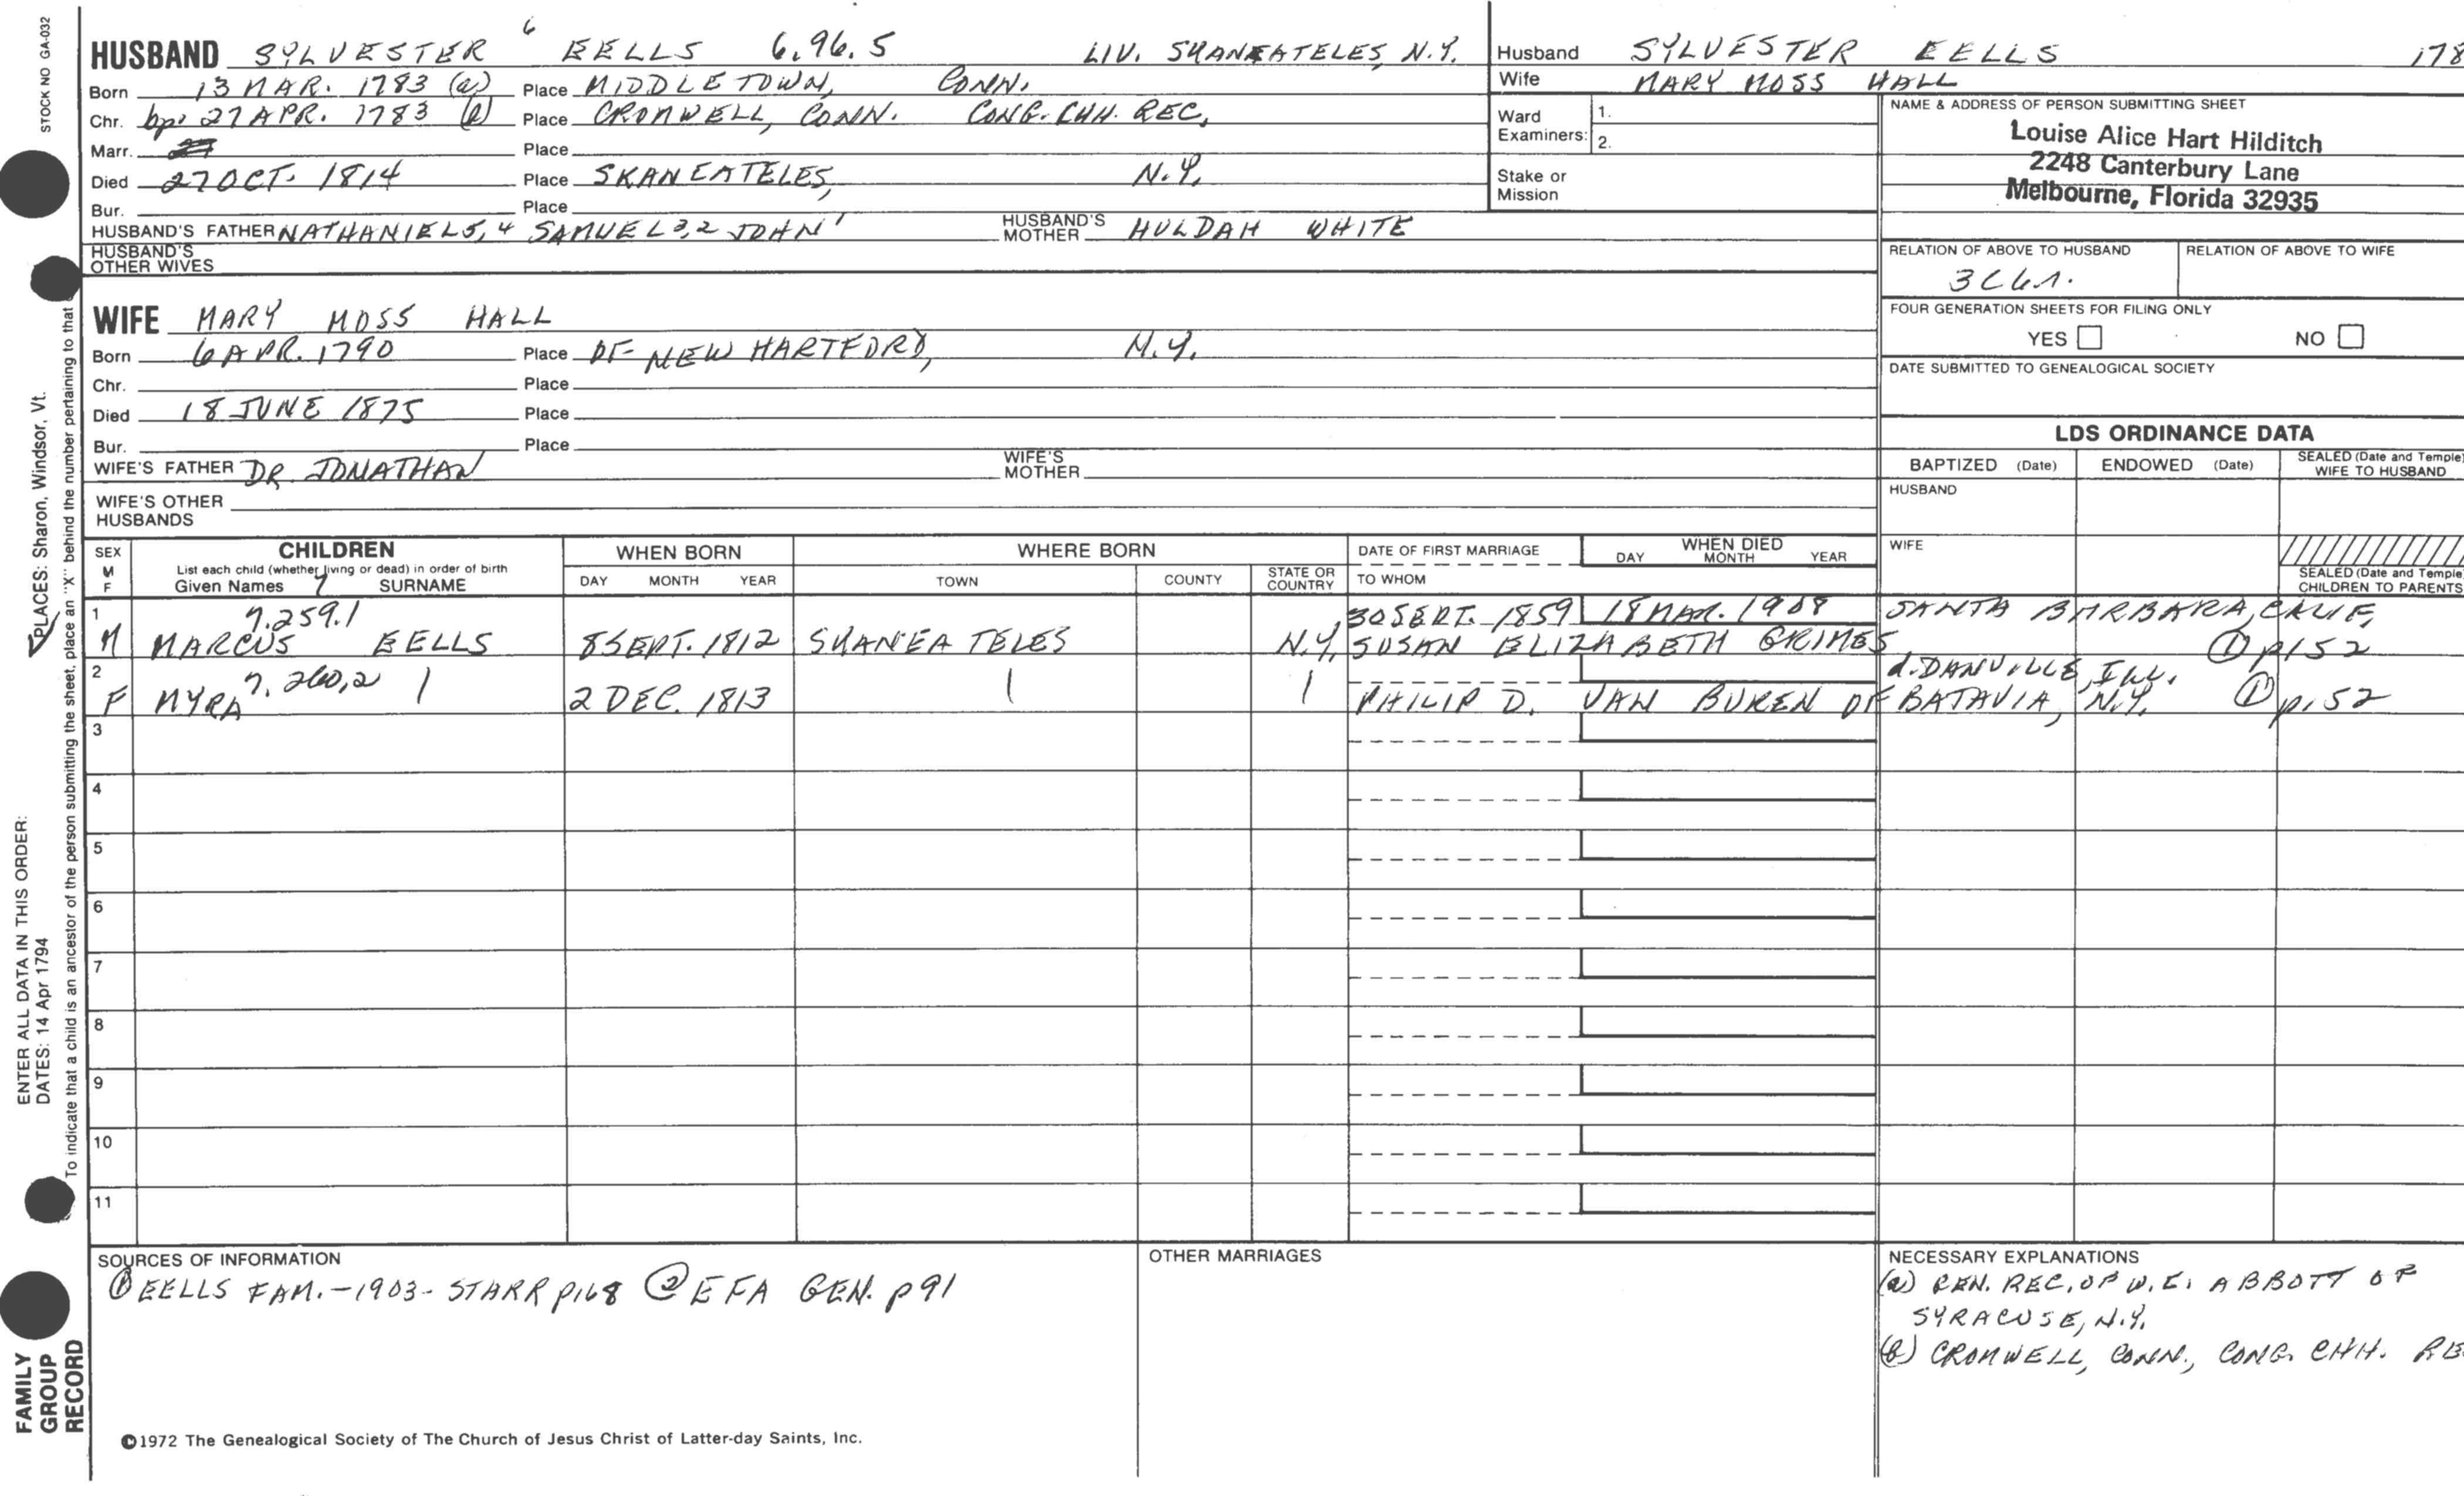 STOCK NO GA-032
HUSBAND SYLVESTER 6 EELLS 6.96.5 LIV. SKANEATELES, N.Y.
Born 13 MAR. 1783 (a) Place MIDDLETOWN, CONN.
Chr. bp. 27 APR. 1783 (b) Place CROMWELL, CONN. CONG. CHH. REC.
Marr. Place
Died 27 OCT. 1814 Place SKANEATELES, N.Y.
Bur. Place
HUSBAND'S FATHER NATHANIEL 5, 4 SAMUEL 3, 2 JOHN 1 HUSBAND'S MOTHER HULDAH WHITE
HUSBAND'S OTHER WIVES
WIFE MARY MOSS HALL
Born 6 APR. 1790 Place OF NEW HARTFORD, N.Y.
Chr. Place
Died 18 JUNE 1875 Place
Bur. Place
WIFE'S FATHER DR. JONATHAN WIFE'S MOTHER
WIFE'S OTHER HUSBANDS
Husband SYLVESTER EELLS 178
Wife MARY MOSS HALL
Ward Examiners: 1.
2.
Stake or Mission
NAME & ADDRESS OF PERSON SUBMITTING SHEET
Louise Alice Hart Hilditch
2248 Canterbury Lane
Melbourne, Florida 32935
RELATION OF ABOVE TO HUSBAND RELATION OF ABOVE TO WIFE
3C4r.
FOUR GENERATION SHEETS FOR FILING ONLY
YES NO
DATE SUBMITTED TO GENEALOGICAL SOCIETY
LDS ORDINANCE DATA
BAPTIZED (Date) ENDOWED (Date) SEALED (Date and Temple) WIFE TO HUSBAND
HUSBAND
WIFE
SEALED (Date and Temple) CHILDREN TO PARENTS
SEX M F CHILDREN WHEN BORN WHERE BORN DATE OF FIRST MARRIAGE WHEN DIED
List each child (whether living or dead) in order of birth
Given Names 7 SURNAME DAY MONTH YEAR TOWN COUNTY STATE OR COUNTRY TO WHOM DAY MONTH YEAR
1 7.259.1 30 SEPT. 1859 18 MAR. 1908 SANTA BARBARA, CALIF.
M MARCUS EELLS 8 SEPT. 1812 SKANEATELES N.Y. SUSAN ELIZABETH GRIMES ① p152
2 7.260.2 d. DANVILLE, ILL.
F MYRA 2 DEC. 1813 PHILIP D. VAN BUREN OF BATAVIA, N.Y. ① p.52
3
4
5
6
7
8
9
10
11
SOURCES OF INFORMATION
① EELLS FAM. - 1903 - STARR p168 ② EFA GEN. p91
OTHER MARRIAGES
NECESSARY EXPLANATIONS
(a) REC. OF W.E. ABBOTT OF
SYRACUSE, N.Y.
(b) CROMWELL, CONN., CONG. CHH. RE
©1972 The Genealogical Society of The Church of Jesus Christ of Latter-day Saints, Inc.
FAMILY GROUP RECORD
ENTER ALL DATA IN THIS ORDER:
DATES: 14 Apr 1794
PLACES: Sharon, Windsor, Vt.
To indicate that a child is an ancestor of the person submitting the sheet, place an "X" behind the number pertaining to that